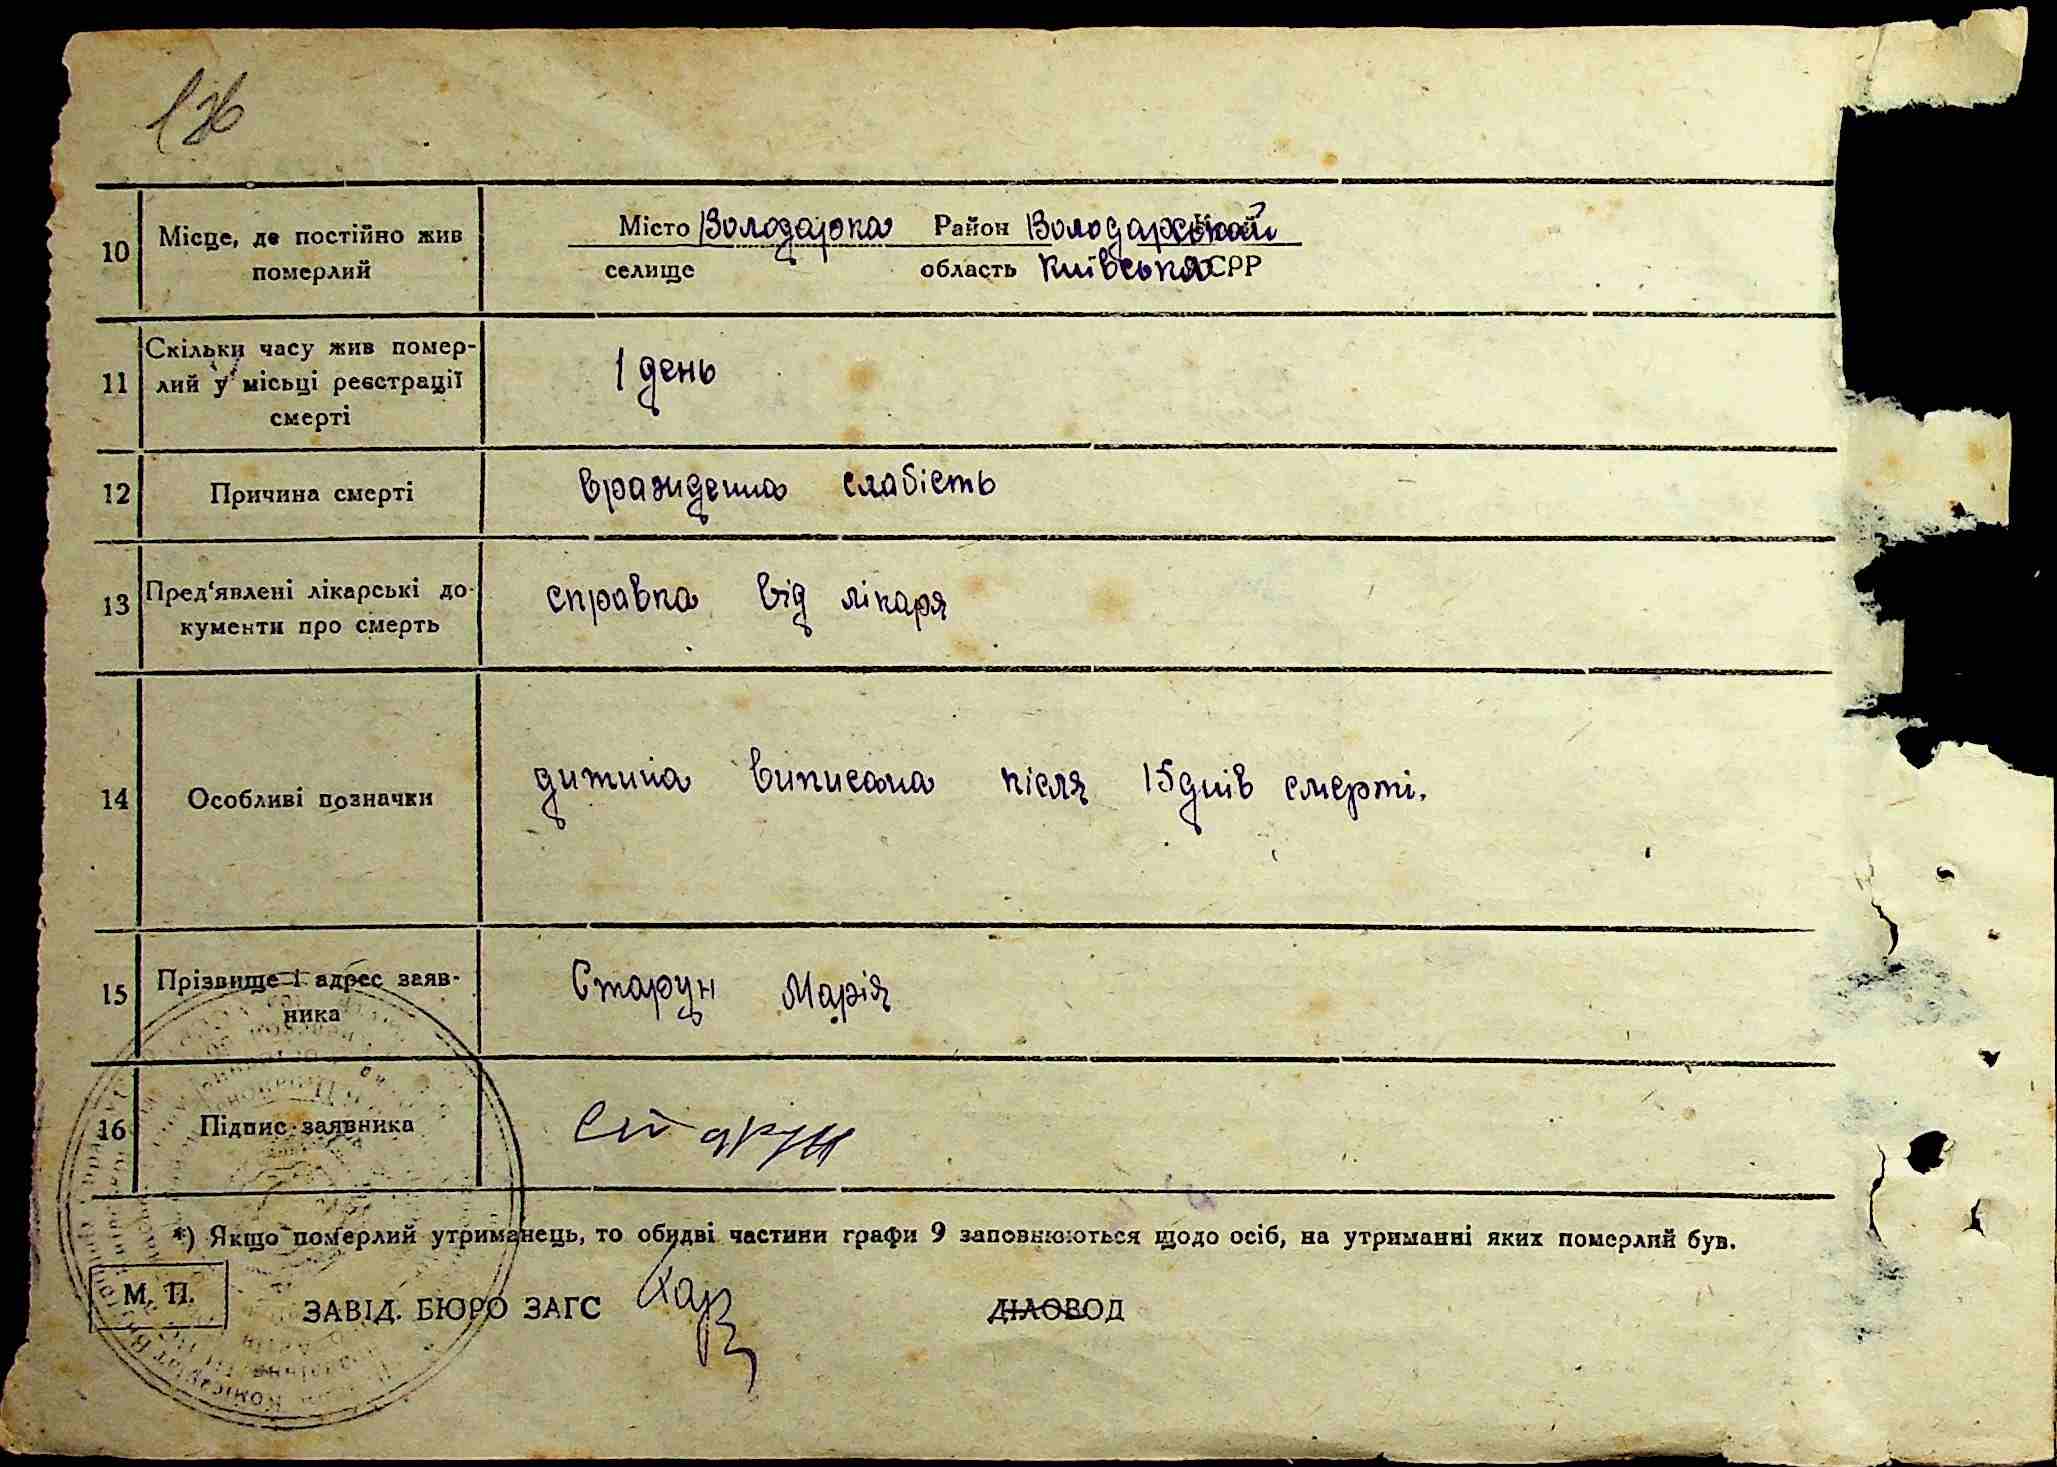 10 Місце, де постійно жив померлий
Місто Володарка Район Володарський
селище область Київська СРР
11 Скільки часу жив помер-
лий у місьці реєстрації
смерті
1 день
12 Причина смерті врожденна слабість
13 Пред'явлені лікарські до-
кументи про смерть
справка від лікаря
14 Особливі позначки дитина виписана після 15 днів смерті.
15 Прізвище і адрес заяв-
ника
Старун Марія
16 Підпис заявника Старун
*) Якщо померлий утриманець, то обидві частини графи 9 заповнюються щодо осіб, на утриманні яких померлий був.
М. П.
ЗАВІД. БЮРО ЗАГС ДІЛОВОД